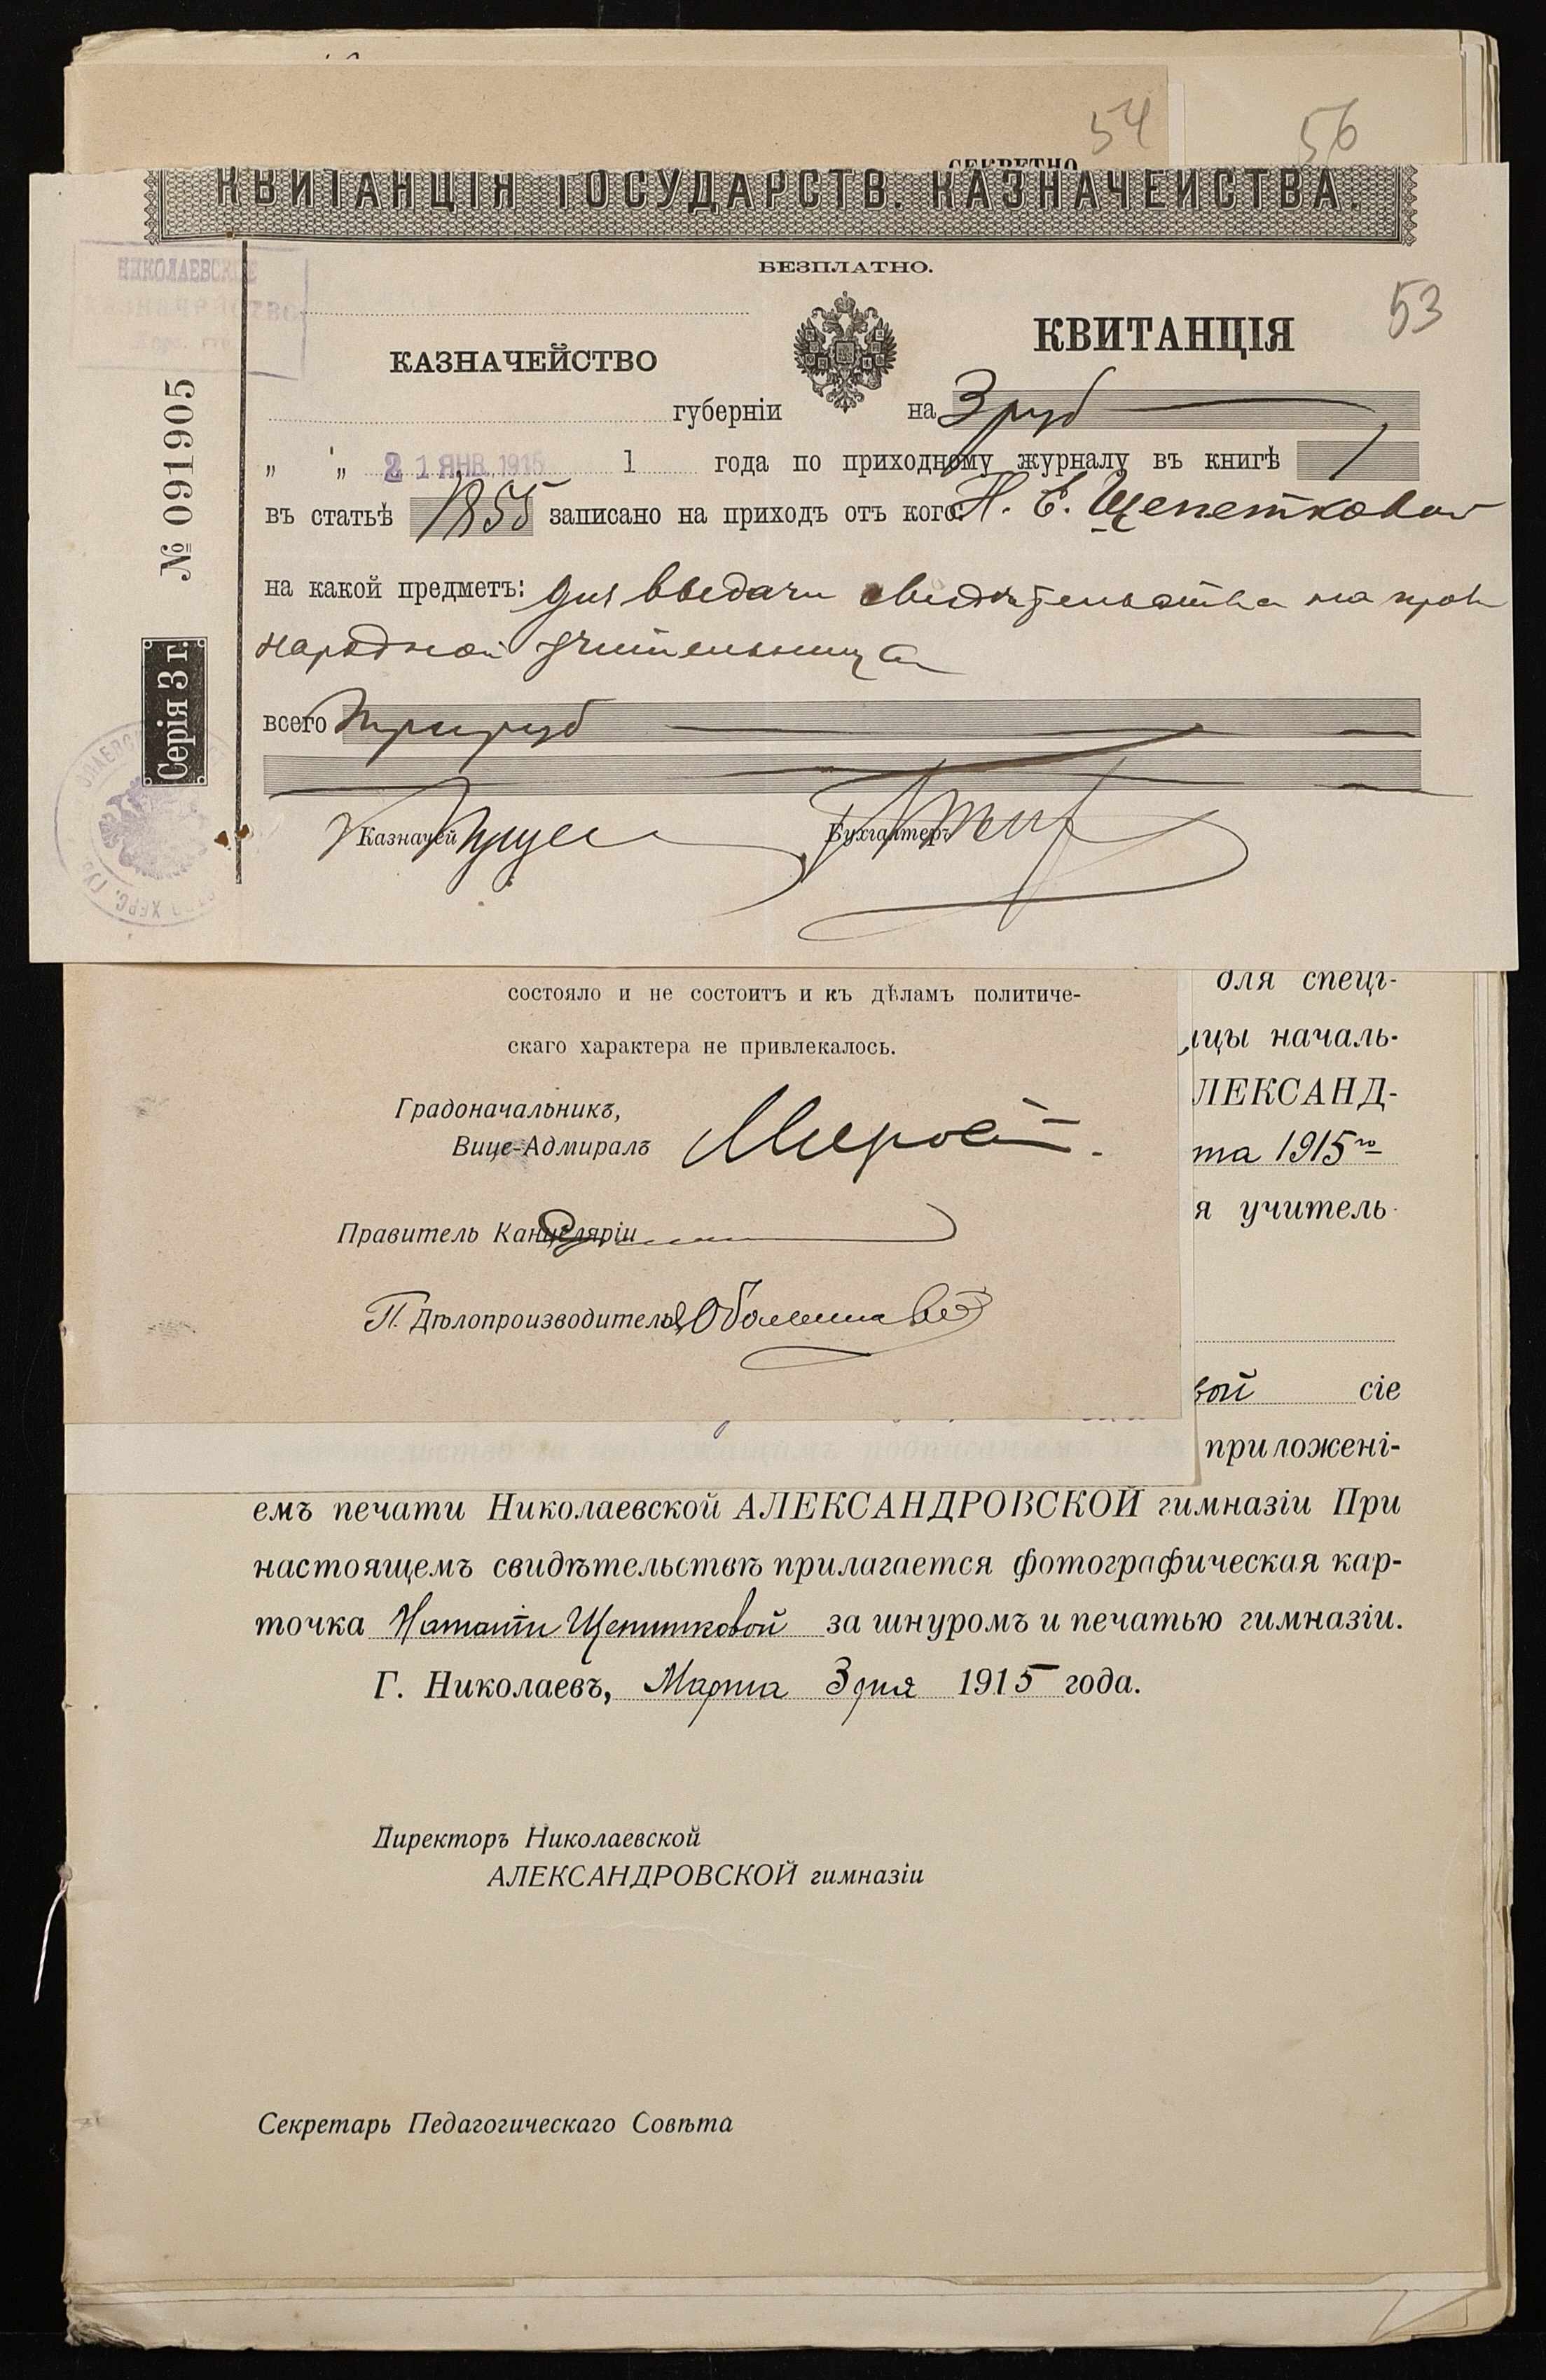 54
56
СЕКРЕТНО
КВИТАНЦІЯ ГОСУДАРСТВ. КАЗНАЧЕЙСТВА.
НИКОЛАЕВСКОЕ
БЕЗПЛАТНО.
53
КВИТАНЦІЯ
КАЗНАЧЕЙСТВО
губерніи на 3 руб
„ „ 21 ЯНВ. 1915 1 года по приходному журналу въ книгѣ 1
въ статьѣ 1855 записано на приходъ отъ кого: Н. Е. Щепетковой
на какой предметъ: для выдачи свидѣтельства на
народной учительницы
всего три руб
Казначей Бухгалтеръ
№ 091905
Серія 3 г.
состояло и не состоитъ и къ дѣламъ политиче-
скаго характера не привлекалось.
Градоначальникъ,
Вице-Адмиралъ
Правитель Канцеляріи
П. Дѣлопроизводитель
для спеці-
ицы началь-
ЛЕКСАНД-
та 1915 го
я учитель-
вой сіе
приложені-
емъ печати Николаевской АЛЕКСАНДРОВСКОЙ гимназіи При
настоящемъ свидѣтельствѣ прилагается фотографическая кар-
точка Наталіи Щепетковой за шнуромъ и печатью гимназіи.
Г. Николаевъ, Марта 3 дня 1915 года.
Директоръ Николаевской
АЛЕКСАНДРОВСКОЙ гимназіи
Секретарь Педагогическаго Совѣта